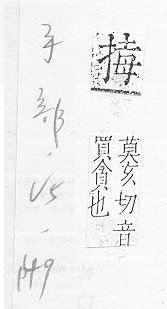 挴
莫亥切音
買貪也
手部